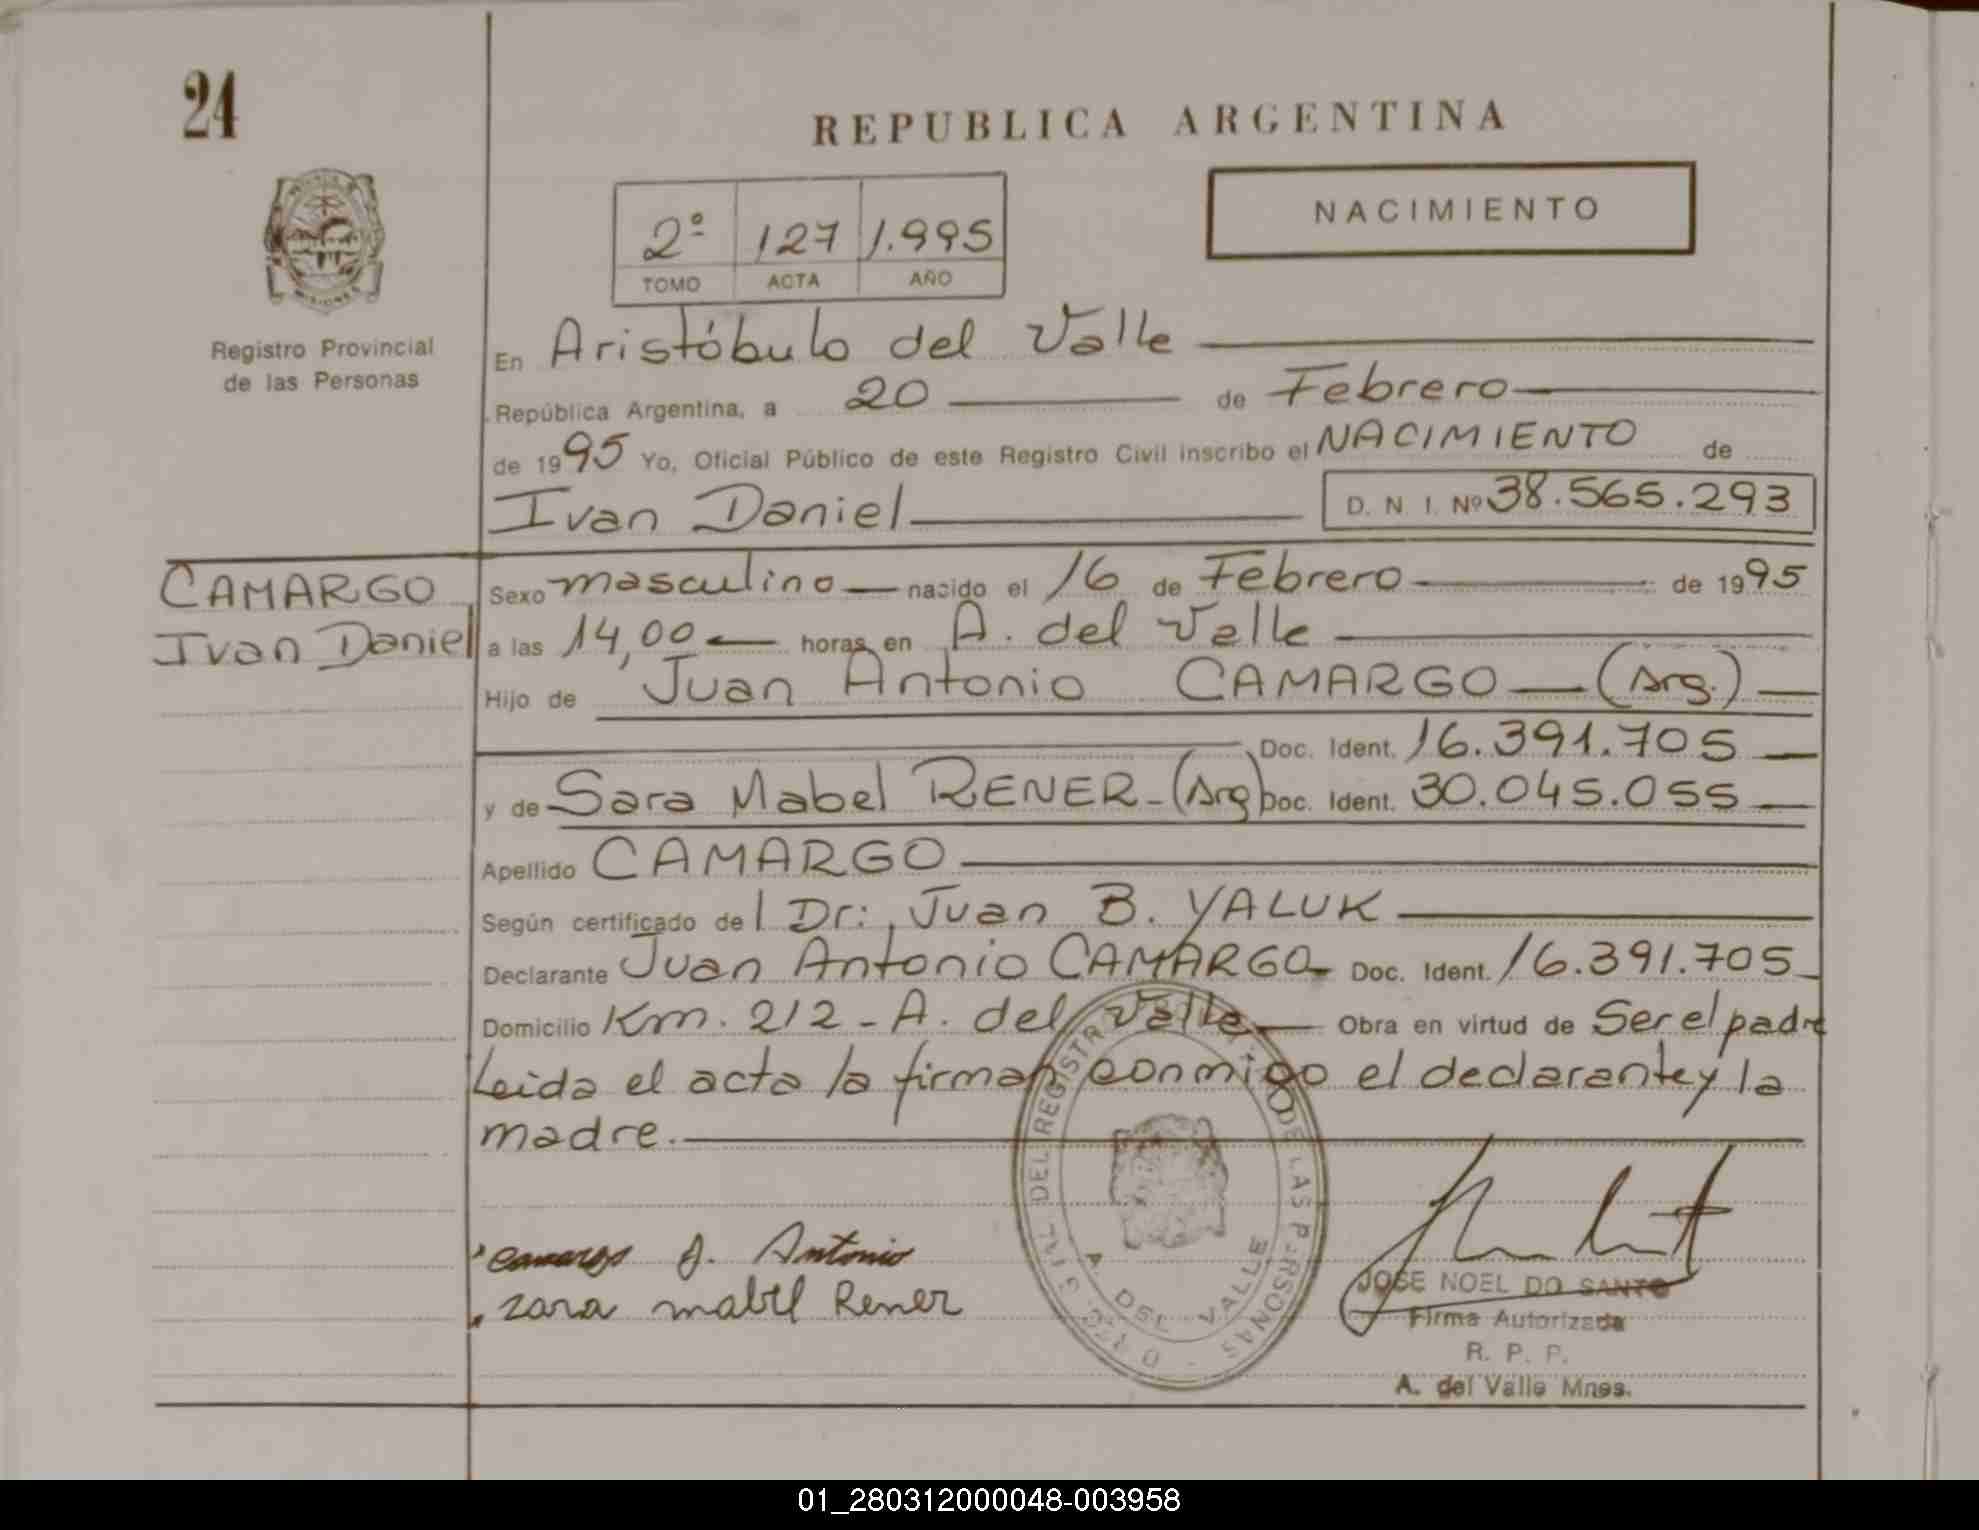 24
REPUBLICA ARGENTINA
NACIMIENTO
2º 127 1.995
TOMO ACTA AÑO
MISIONES
Registro Provincial
de las Personas
En Aristóbulo del Valle
República Argentina, a 20 de Febrero
de 1995 Yo, Oficial Público de este Registro Civil inscribo el NACIMIENTO de
Ivan Daniel D. N. I. Nº 38.565.293
CAMARGO
Ivan Daniel
Sexo masculino nacido el 16 de Febrero de 1995
a las 14,00 horas en A. del Valle
Hijo de Juan Antonio CAMARGO (Arg.)
Doc. Ident. 16.391.705
y de Sara Mabel RENER - (Arg) Doc. Ident. 30.045.055
Apellido CAMARGO
Según certificado del Dr: Juan B. YALUK
Declarante Juan Antonio CAMARGO Doc. Ident. 16.391.705
Domicilio Km. 212 - A. del Valle Obra en virtud de Ser el padre
Leida el acta la firman conmigo el declarante y la
madre.
DEL REGISTRO DE LAS PERSONAS
A. DEL VALLE
camargo J. Antonio
zara mabel Rener
JOSE NOEL DO SANTO
Firma Autorizada
R. P. P.
A. del Valle Mnes.
01_280312000048-003958